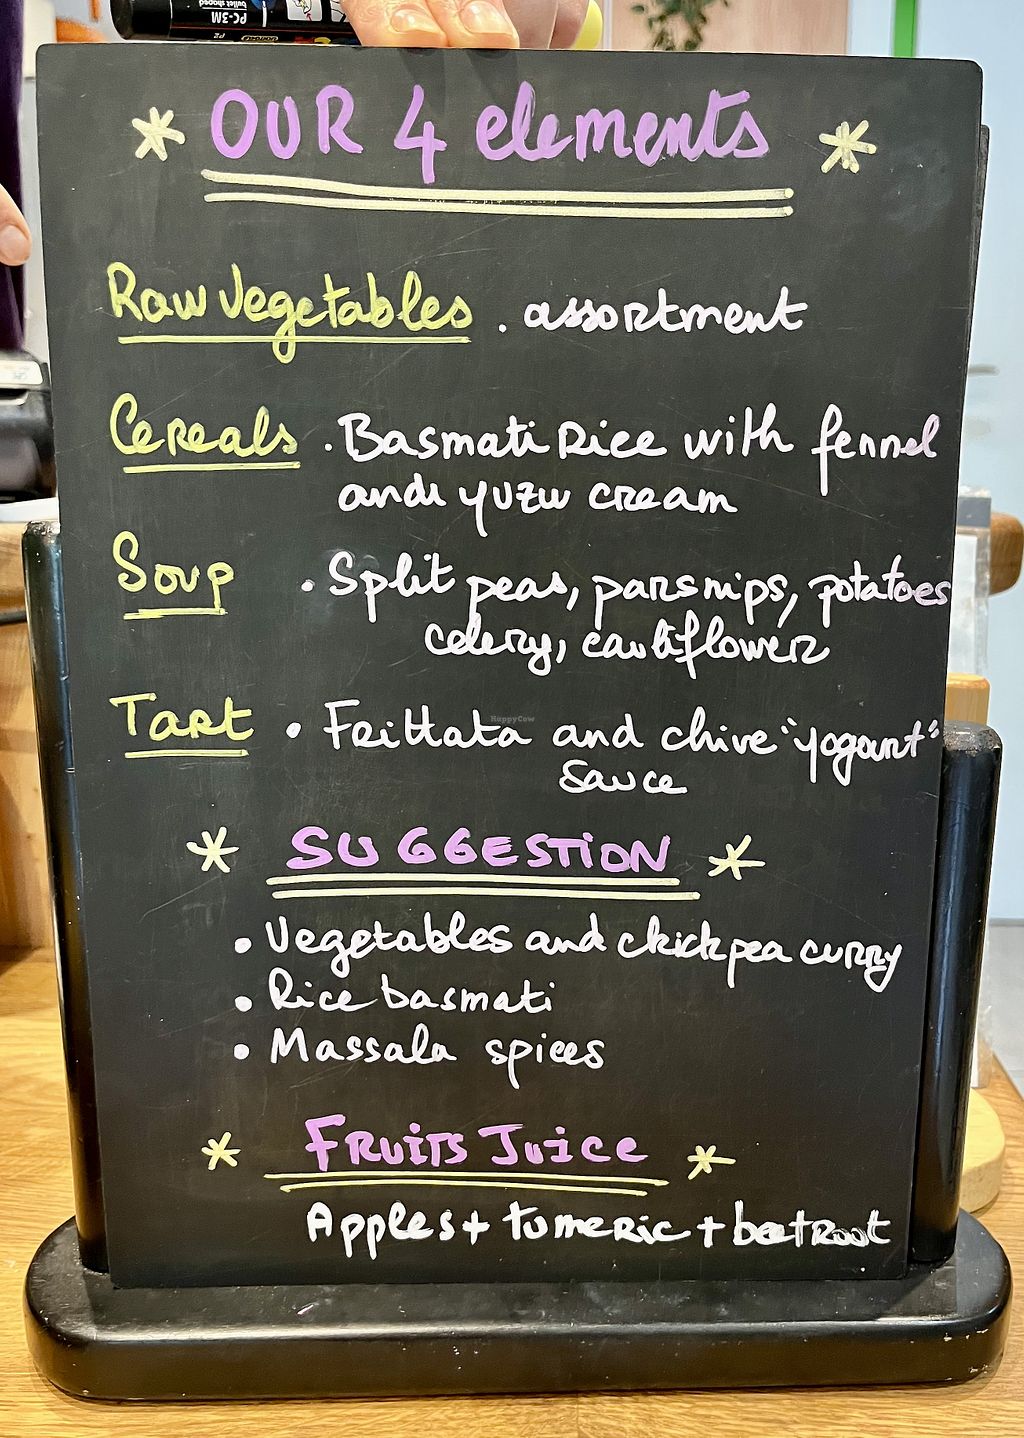 PC-3M
bullet shaped
* OUR 4 elements *
Raw Vegetables . assortment
Cereals . Basmati Rice with fennel
and yuzu cream
Soup . Split peas, parsnips, potatoes
celery, cauliflower
Tart . Frittata and chive "yogourt"
sauce
HappyCow
* SUGGESTION *
• Vegetables and chickpea curry
• Rice basmati
• Massala spices
* FRUITS JUICE *
Apples + tumeric + beetroot